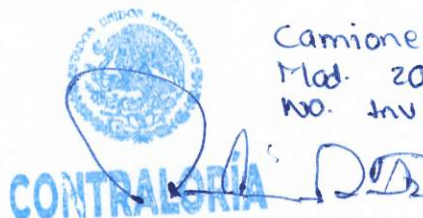 ESTADOS UNIDOS MEXICANOS
Camione
Mod. 20
No. Inv
CONTRALORÍA